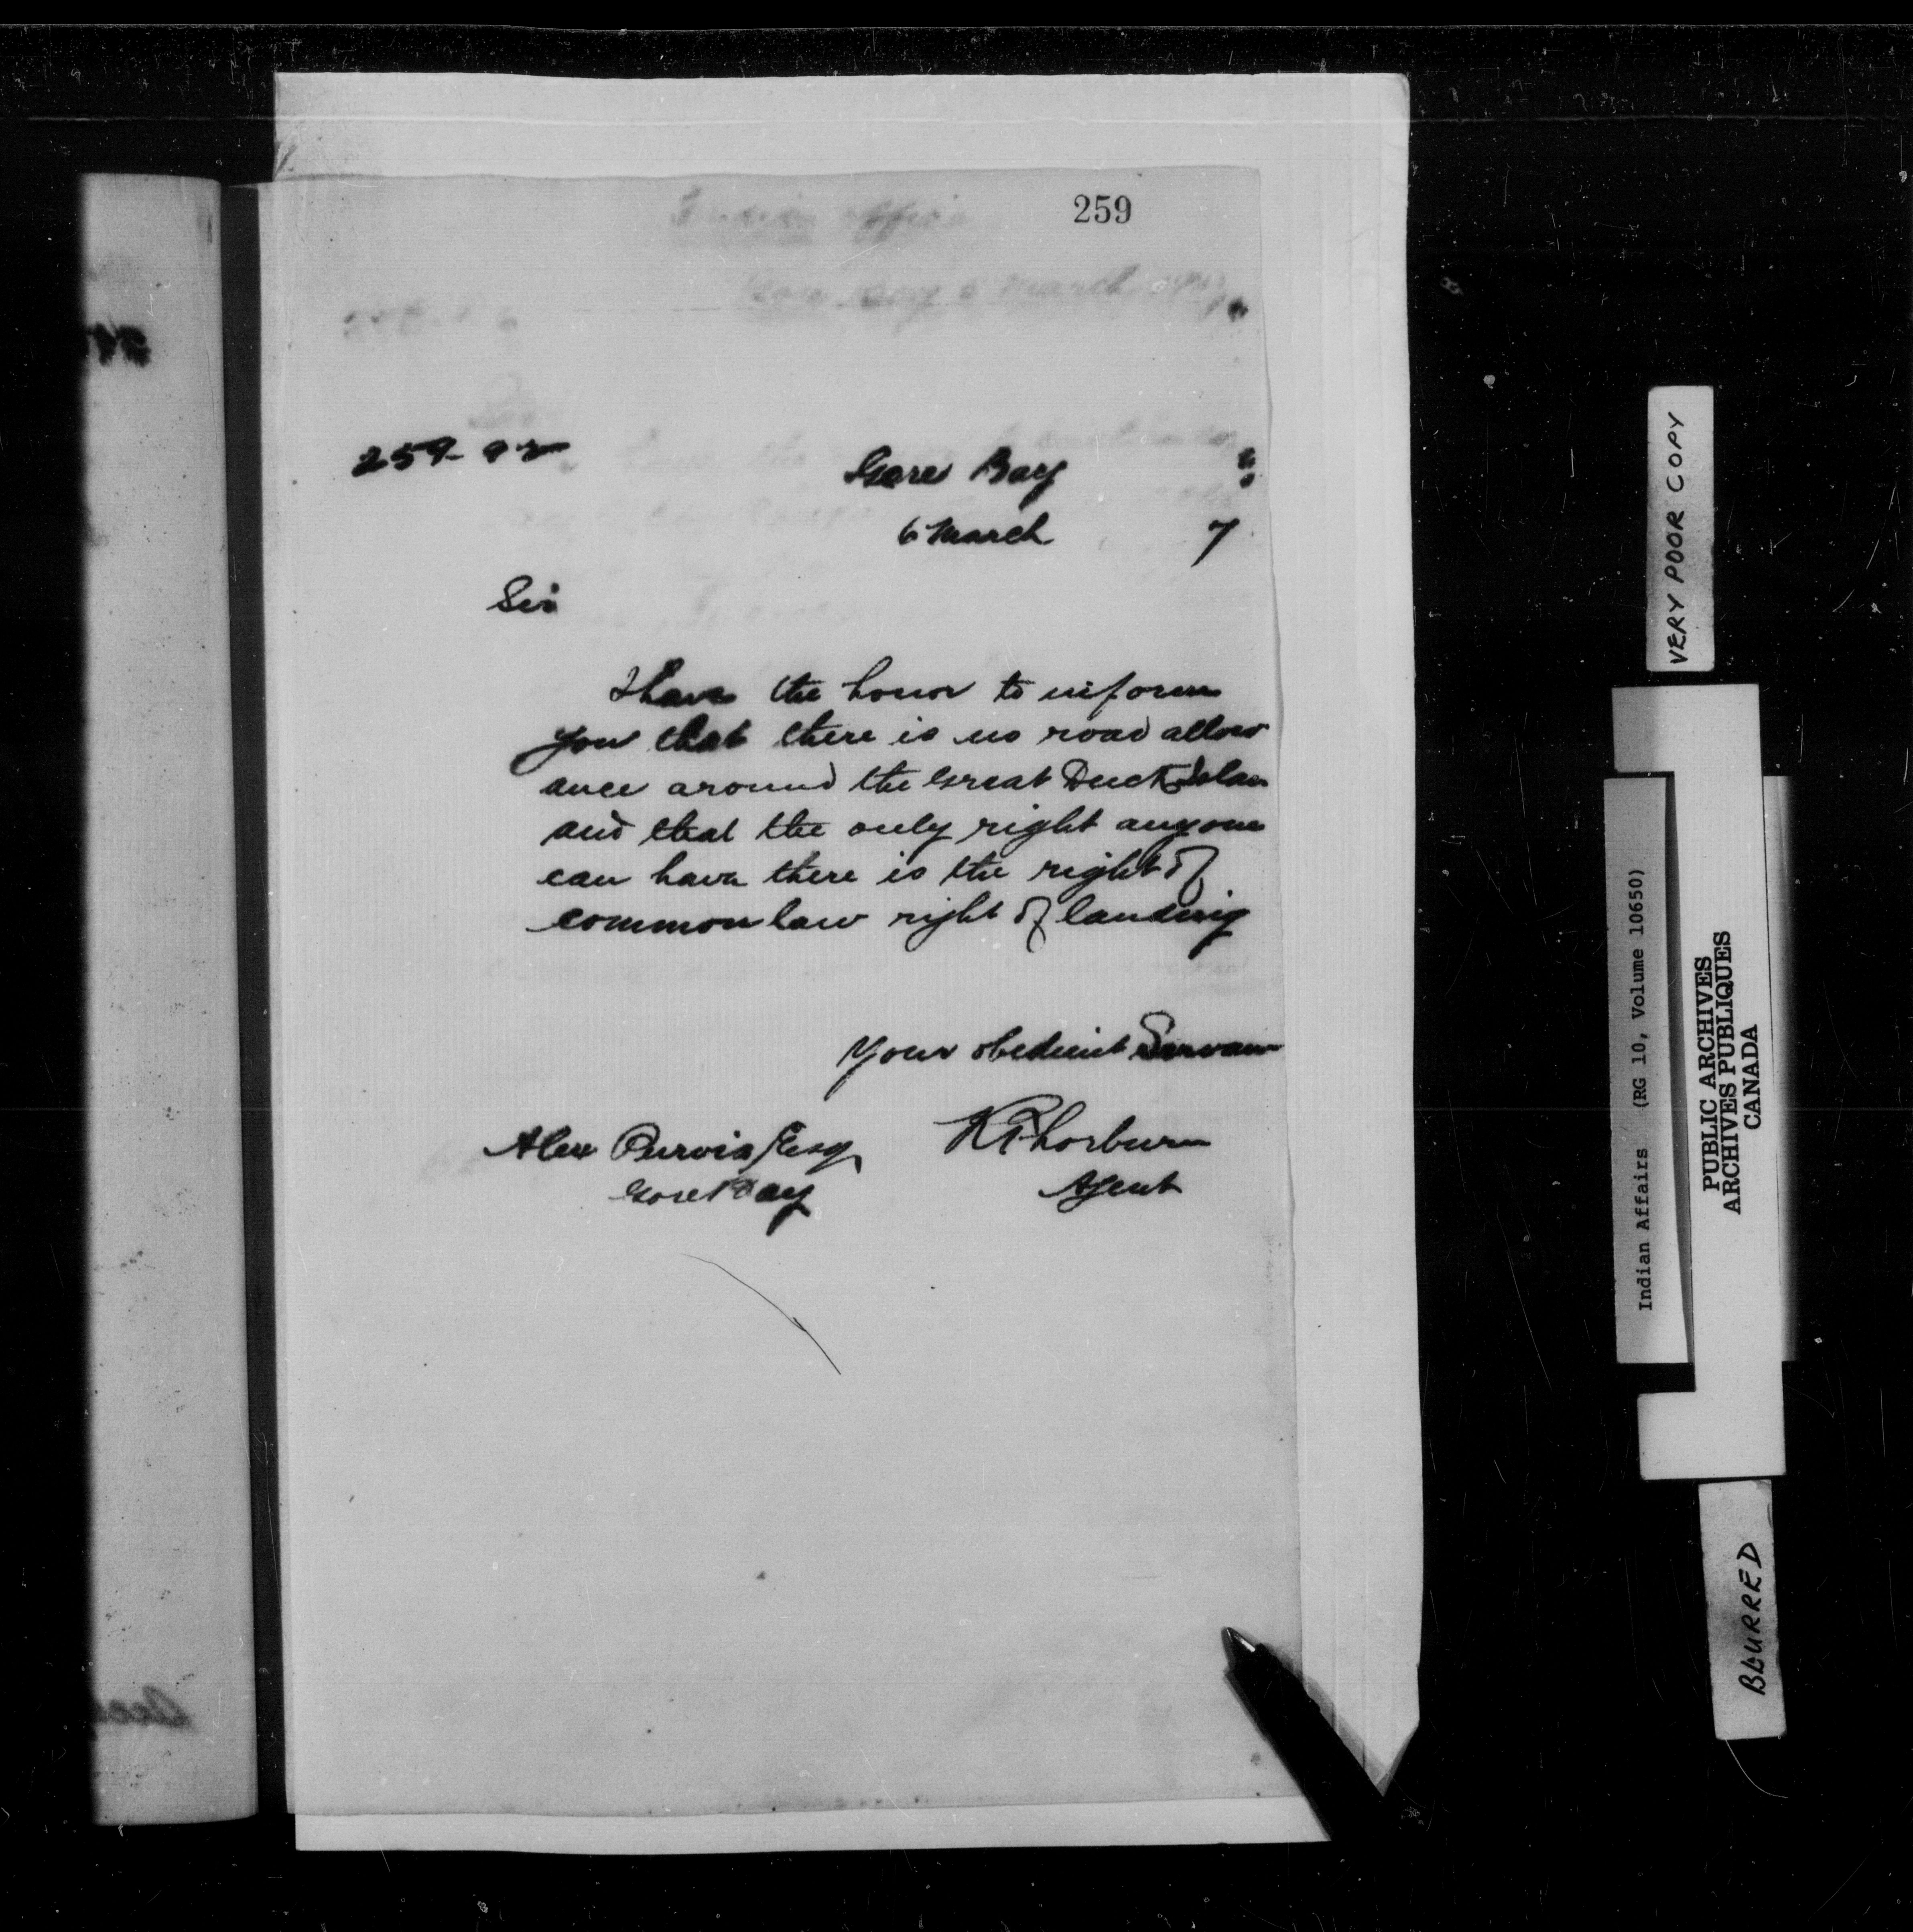 259
259-92
Gore Bay
6 March 7
Sir
I have the honor to inform
you that there is no road allow
ance around the Great Duck Islan
and that the only right anyone
can have there is the right of
common law right of landing
Your obedient Servan
Alex Purvis Esq
RThorburn
Gore Bay
Agent
VERY POOR COPY
Indian Affairs (RG 10, Volume 10650)
PUBLIC ARCHIVES
ARCHIVES PUBLIQUES
CANADA
BLURRED